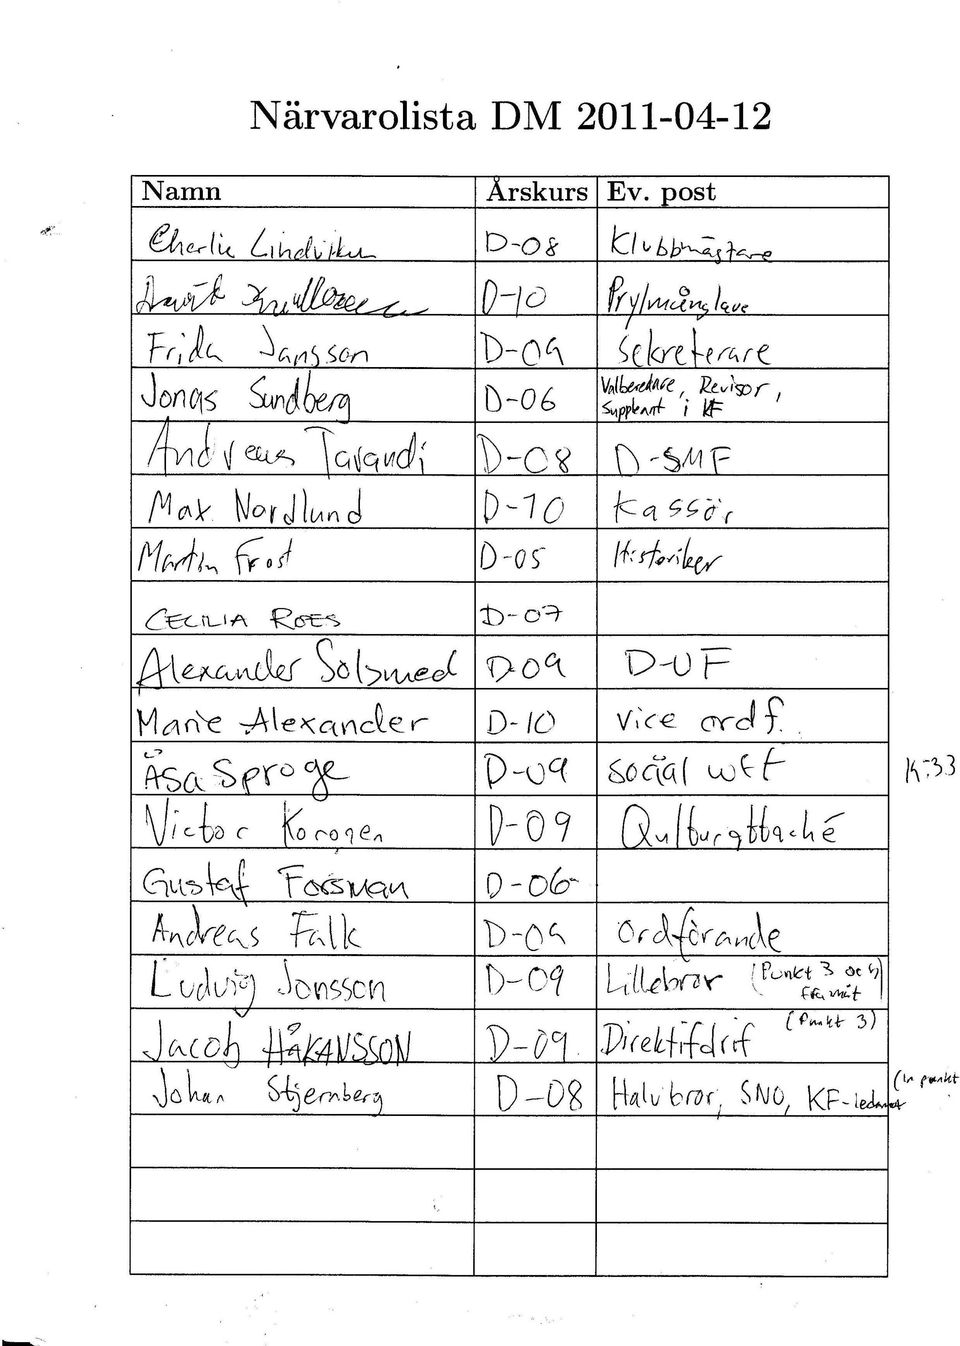 Närvarolista DM 2011-04-12
Namn Årskurs Ev. post
Charlie D-08 Klubbmästare
D-10 Prylmånglare
Frida Jansson D-09 Sekreterare
Jonas Sundberg D-06 Valberedare, Revisor,
Suppleant i KF
Andreas Tarandi D-08 D-SMF
Max Nordlund D-10 Kassör
Martin Frost D-05 Historiker
CECILIA ROES D-07
Alexander Solsmed D-09 D-UF
Marie Alexander D-10 vice ordf.
Åsa Sproge D-09 social 14:33
Victor Koronen D-09 Qulturattaché
Gustaf Forsman D-06
Andreas Falk D-09 Ordförande
Ludvig Jonsson D-09 Lillebror (Punkt 3 och
framåt
Jacob HÅKANSSON D-09 Direktifdrif (Punkt 3)
Johan Stjernberg D-08 Halvbror, SNO, KF-ledamot (in punkt